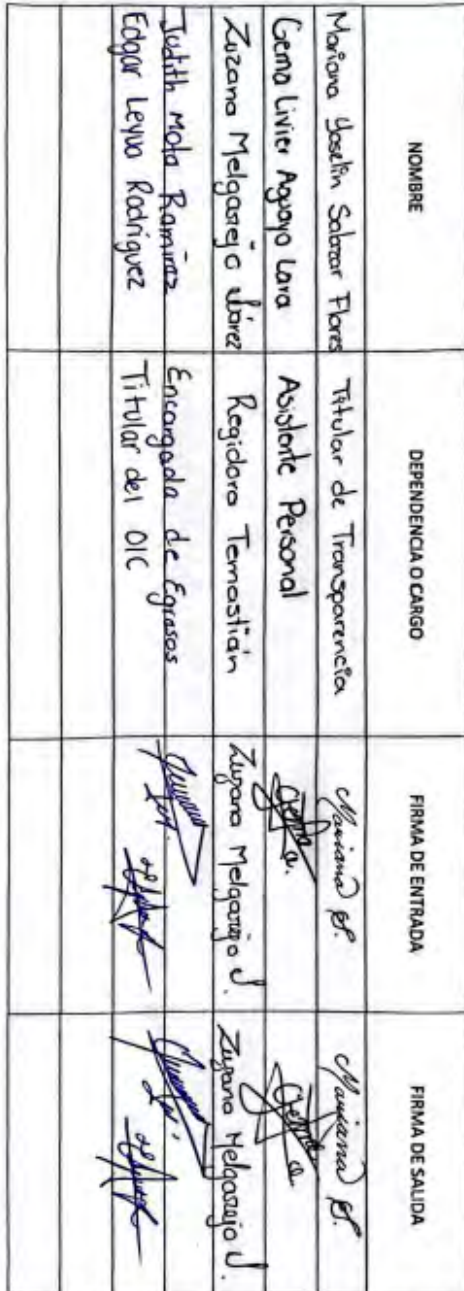 NOMBRE DEPENDENCIA O CARGO FIRMA DE ENTRADA FIRMA DE SALIDA
Mariana Yoselin Salazar Flores Titular de Transparencia Mariana S. Mariana S.
Gema Livier Aguayo Lara Asistente Personal Gema a. Gema a.
Zuzana Melgarejo Júarez Regidora Temastián Zuzana Melgarejo J. Zuzana Melgarejo J.
Judith Mota Ramírez Encargada de Egresos
Edgar Leyva Rodríguez Titular del OIC